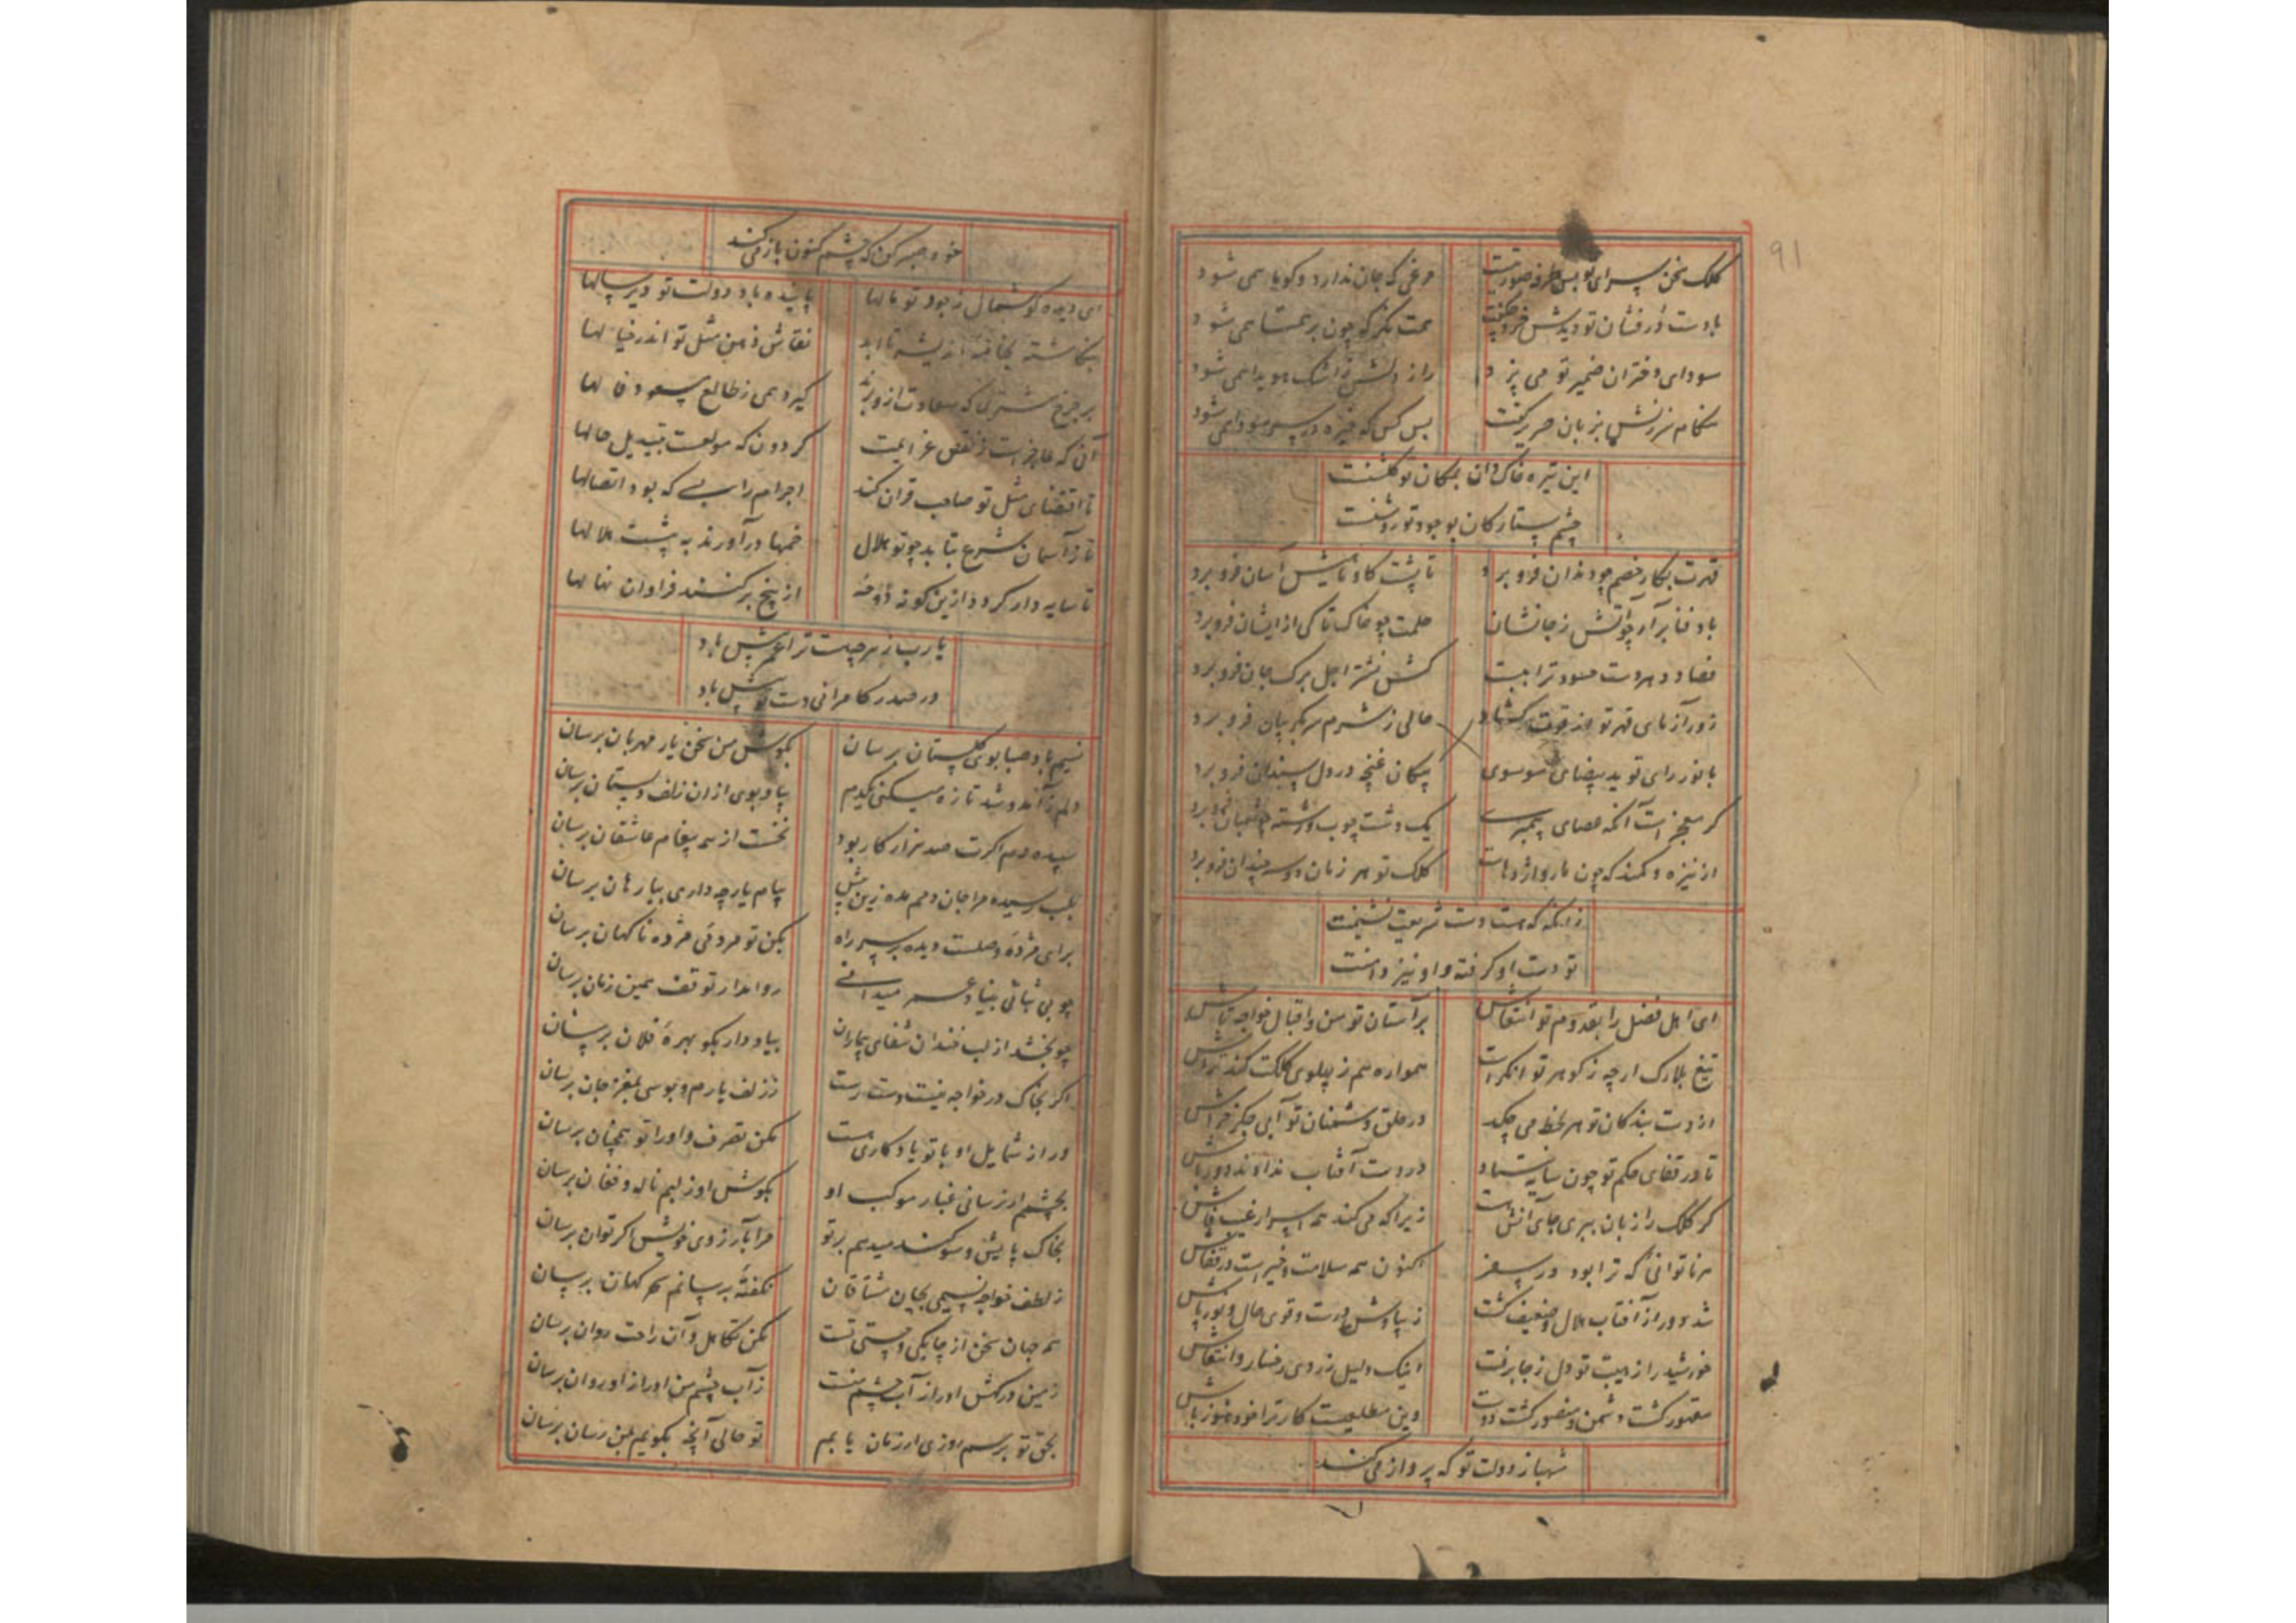 91
کلک سخن سرای تو بس طرفه صورتیست مرغی که جان ندارد و گویا همی شود
بادست درفشان تو دیدش خرد چگفت همت نگر که چون بر همتا همی شود
سودای دفتران ضمیر تو می پزد راز دلش ز اشک هویدا همی شود
هنگام سرزنش بزبان صریر گفت بس کس که خیره در سر سودا همی شود
این تیره خاک دان بمکان تو گلشنست
چشم ستارگان بوجود تو روشنست
قهرت بکار خصم چو دندان فرو برد تا پشت گاو ماهیش آسان فرو برد
باد فنا برآر چو آتش ز جانشان حلمت چو خاک تا کی از ایشان فرو برد
فصاد دهر دست حسود ترا ببست کش نشتر اجل برگ جان فرو برد
زورآزمای قهر تو از قوت گشاد حالی ز شرم سر بگریبان فرو برد
با نور رای تو ید بیضای موسوی پیکان غنچه در دل سندان فرو برد
گر معجز است آنکه عصای پیمبری یک دشت چوب و رشته چو ثعبان فرو برد
از نیزه و کمند که چون مار و اژدهاست کلک تو هر زمان دو سه چندان فرو برد
زانگه که هست دست شریعت نشیمنت
تو دست او گرفته و او نیز دامنت
ای اهل فضل را بقدوم تو انتعاش بر آستان تو من و اقبال خواجه تاش
تیغ بلارک ارچه ز گوهر توانگر است همواره هم ز پهلوی کلکت کند تراش
از دست بندگان تو هر لحظه می چکد در حلق دشمنان تو آبی جگر خراش
تا در قفای حکم تو چون سایه ایستاد در دست آفتاب نداوند دورباش
گر کلک را زبان ببری جای آنش هست زیرا که می کند همه اسرار غیب فاش
هر ناتوانی که ترا بود در سفر اکنون همه سلامت و خیر است در قفاش
شد دور از آفتاب هلال و ضعیف گشت ز پاوش درست و قوی حال و نورپاش
خورشید را ز هیبت تو دل ز جا برفت اینک دلیل زردی رخسار و ارتعاش
مقهور گشت دشمن و منصور گشت دوست وین مطلعیست کار ترا خود هنوز باش
شهباز دولت تو که پرواز می کند
خود صبر کن که چشم کنون باز می کند
ای دیده گوشمال ز جود تو مالها پاینده باد دولت تو دیر سالها
ننگاشته بخامه اندیشه تا ابد نقاش ذهن مثل تو اندر خیالها
بر چرخ مشتری که سعادت ازو برند گیرد همی ز طالع مسعود فالها
آن که عاجز است ز نقض عزایمت گردون که مولعست بتبدیل حالها
تا اقتضای مثل تو صاحب قران کند اجرام را بسی که بود اتصالها
تا ز آسمان شرع بتابد چو تو هلال خمها درآورند به پشت هلالها
تا سایه دار گردد ازین گونه دوحه از بیخ برکنند فراوان نهالها
یا رب ز هرچه هست ترا عمر بیش باد
در صدر کامرانی دست تو پیش باد
نسیم باد صبا بوی گلستان برسان بگوش من سخن یار مهربان برسان
دلم ز آمد و شد تازه میکنی هر دم بیا و بوی از ان زلف دلستان برسان
سپیده دم اگرت صد هزار کار بود نخست از همه پیغام عاشقان برسان
بلب رسیده مرا جان دمم مده زین بیش پیام یار چه داری بیار هان برسان
برای مژده وصلت دیده بر سر راه بکن تو مردمی مژده ناگهان برسان
چو بی ثباتی بنیاد عمر میدانی روا مدار توقف همین زمان برسان
چو بخشد از لب خندان شفای بیماران بیاد دار بگو بهره فلان برسان
اگر بخاک در خواجه نیستت دست رست ز زلف یارم و بوسی بمغز جان برسان
ور از شمایل او با تو یادگاری هست مکن تصرف و او را تو همچنان برسان
بچشمم ار نرسانی غبار موکب او بگوش او ز لبم ناله و فغان برسان
بخاک پایش سوگند میدهم بر تو مرا بآرزوی خویش اگر توان برسان
ز لطف خواجه نسیمی بجان مشتاقان نگفته برسانم گهر کهان برسان
همه جهان سخن از چابکی و چستی تست مکن تکاهل و آن راحت روان برسان
زمین درکش او را ز آب چشم منست ز آب چشم من او را زار و روان برسان
بحق تو برسم روزی ار زمان یابم تو حالی آنچه بگویم بمن رسان برسان